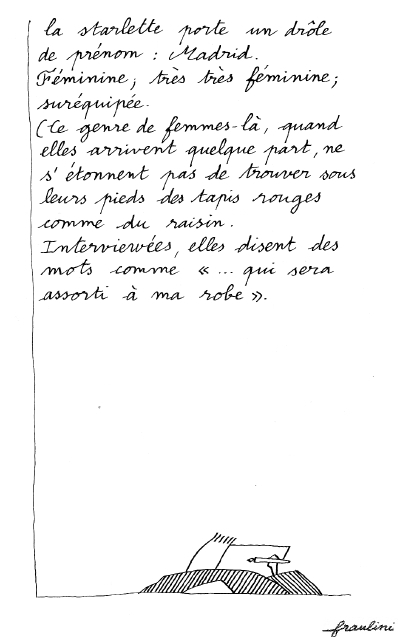 la starlette porte un drôle
de prénom : Madrid.
Féminine ; très très féminine ;
suréquipée.
(Ce genre de femmes-là, quand
elles arrivent quelque part, ne
s'étonnent pas de trouver sous
leurs pieds des tapis rouges
comme du raisin.
Interviewées, elles disent des
mots comme « ... qui sera
assorti à ma robe ».
fraulini